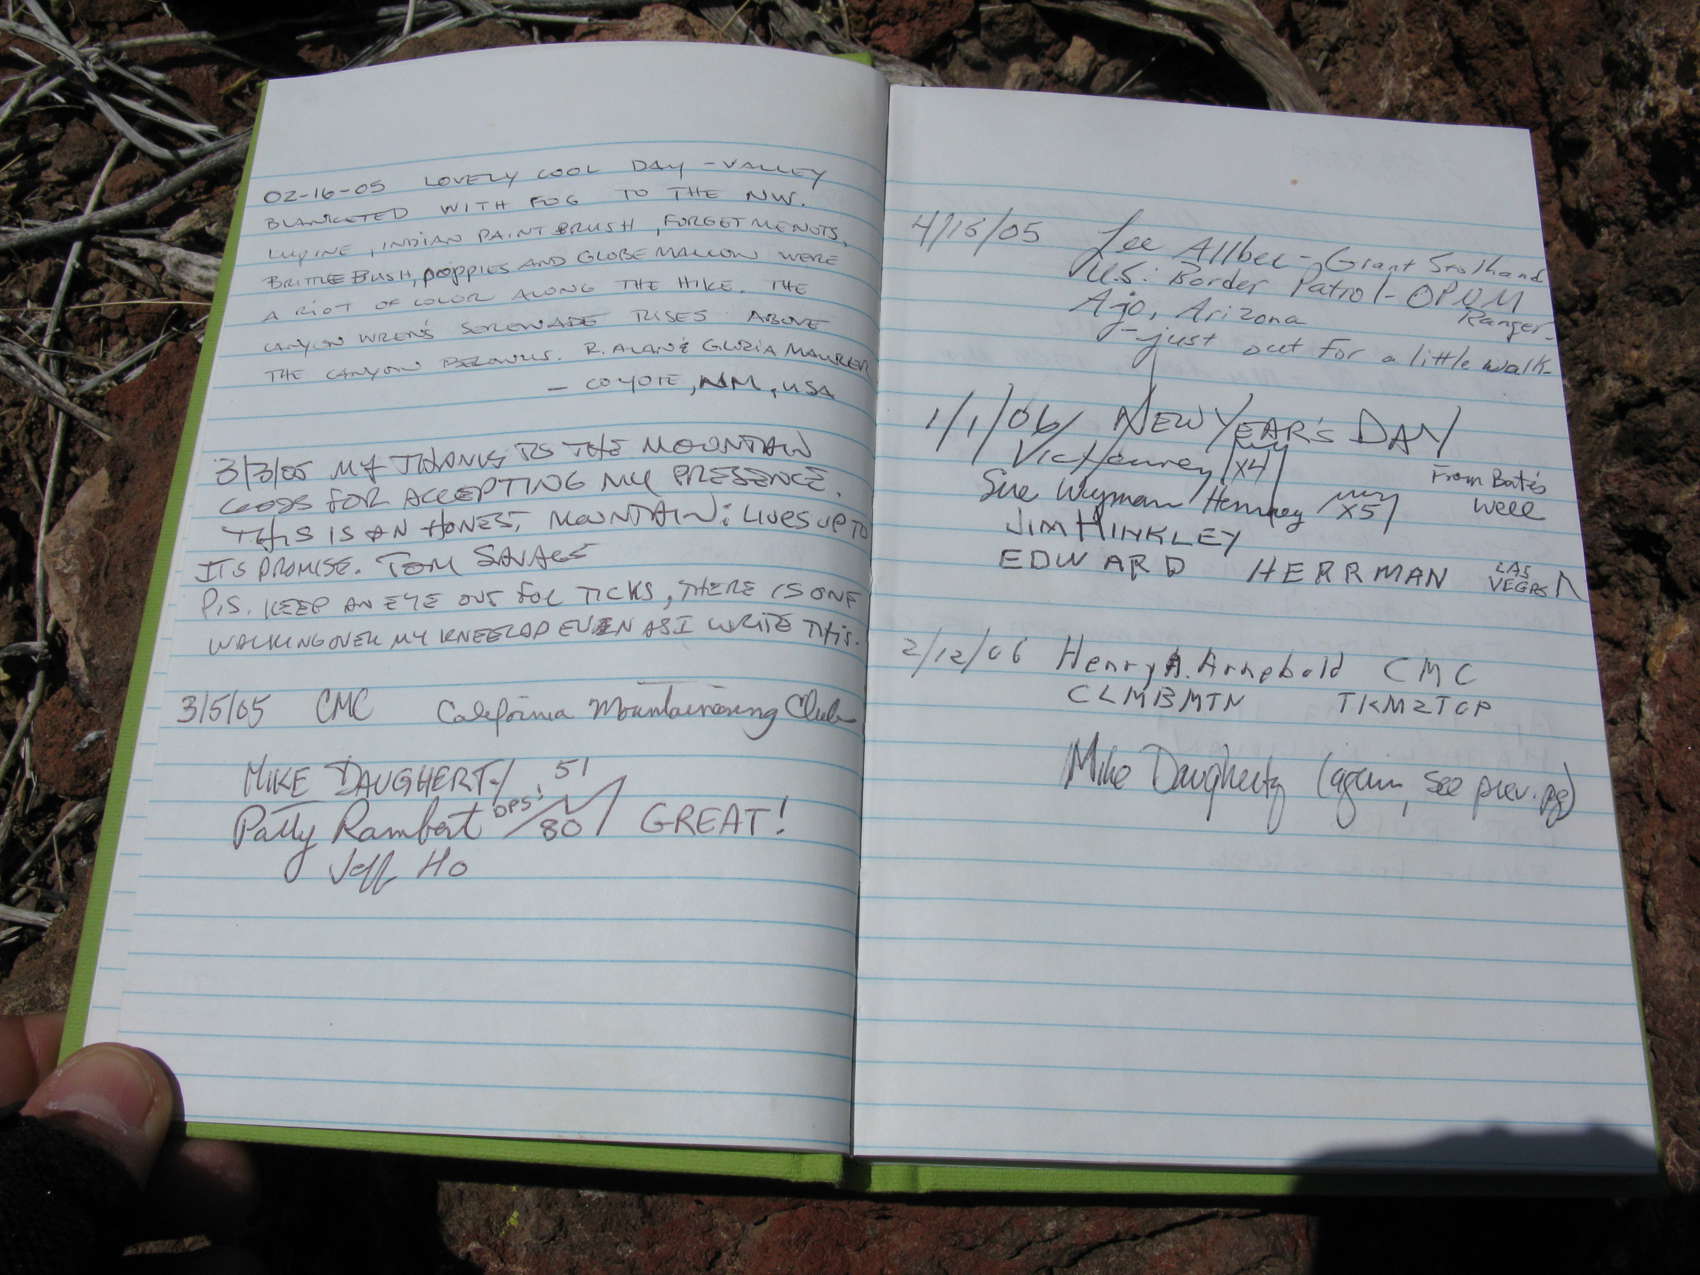 02-16-05 LOVELY COOL DAY - VALLEY
BLANKETED WITH FOG TO THE NW.
LUPINE, INDIAN PAINT BRUSH, FORGET ME NOTS,
BRITTLE BUSH, POPPIES AND GLOBE MALLOW WERE
A RIOT OF COLOR ALONG THE HIKE. THE
CANYON WREN'S SERENADE RISES ABOVE
THE CANYON BELOW US. R. ALAN & GLORIA MAURER
- COYOTE, NM, USA
3/3/05 MY THANKS TO THE MOUNTAIN
GODS FOR ACCEPTING MY PRESENCE.
THIS IS AN HONEST MOUNTAIN: LIVES UP TO
ITS PROMISE. TOM SAVAGE
P.S. KEEP AN EYE OUT FOR TICKS, THERE IS ONE
WALKING OVER MY KNEECAP EVEN AS I WRITE THIS.
3/5/05 CMC California Mountaineering Club
MIKE DAUGHERTY
Patty Rambert DPS: 51/80 GREAT!
Jeff Ho
4/13/05 Lee Allbee - Grant Stolhand
U.S. Border Patrol - OPQM
Ajo, Arizona Ranger -
- just out for a little walk -
1/1/06 NEW YEAR'S DAY
Vic Henney X4 From Bates
Sue Wyman/Henney X5 Well
JIM HINKLEY
EDWARD HERRMAN LAS
VEGAS
2/12/06 Henry A. Arnebold CMC
CLMBMTN TKM2TOP
Mike Daugherty (again, see prev. pg)